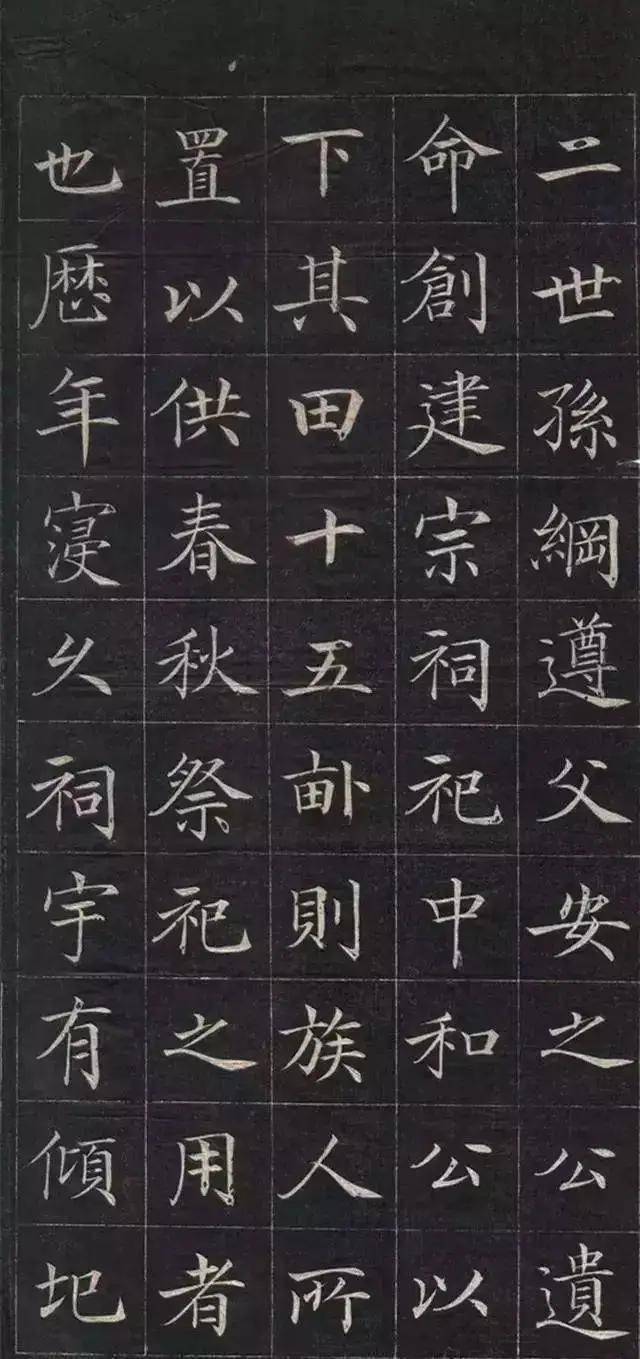 二世孫綱遵父安之公遺
命創建宗祠祀中和公以
下其田十五畝則族人所
置以供春秋祭祀之用者
也歷年寖久祠宇有傾圮